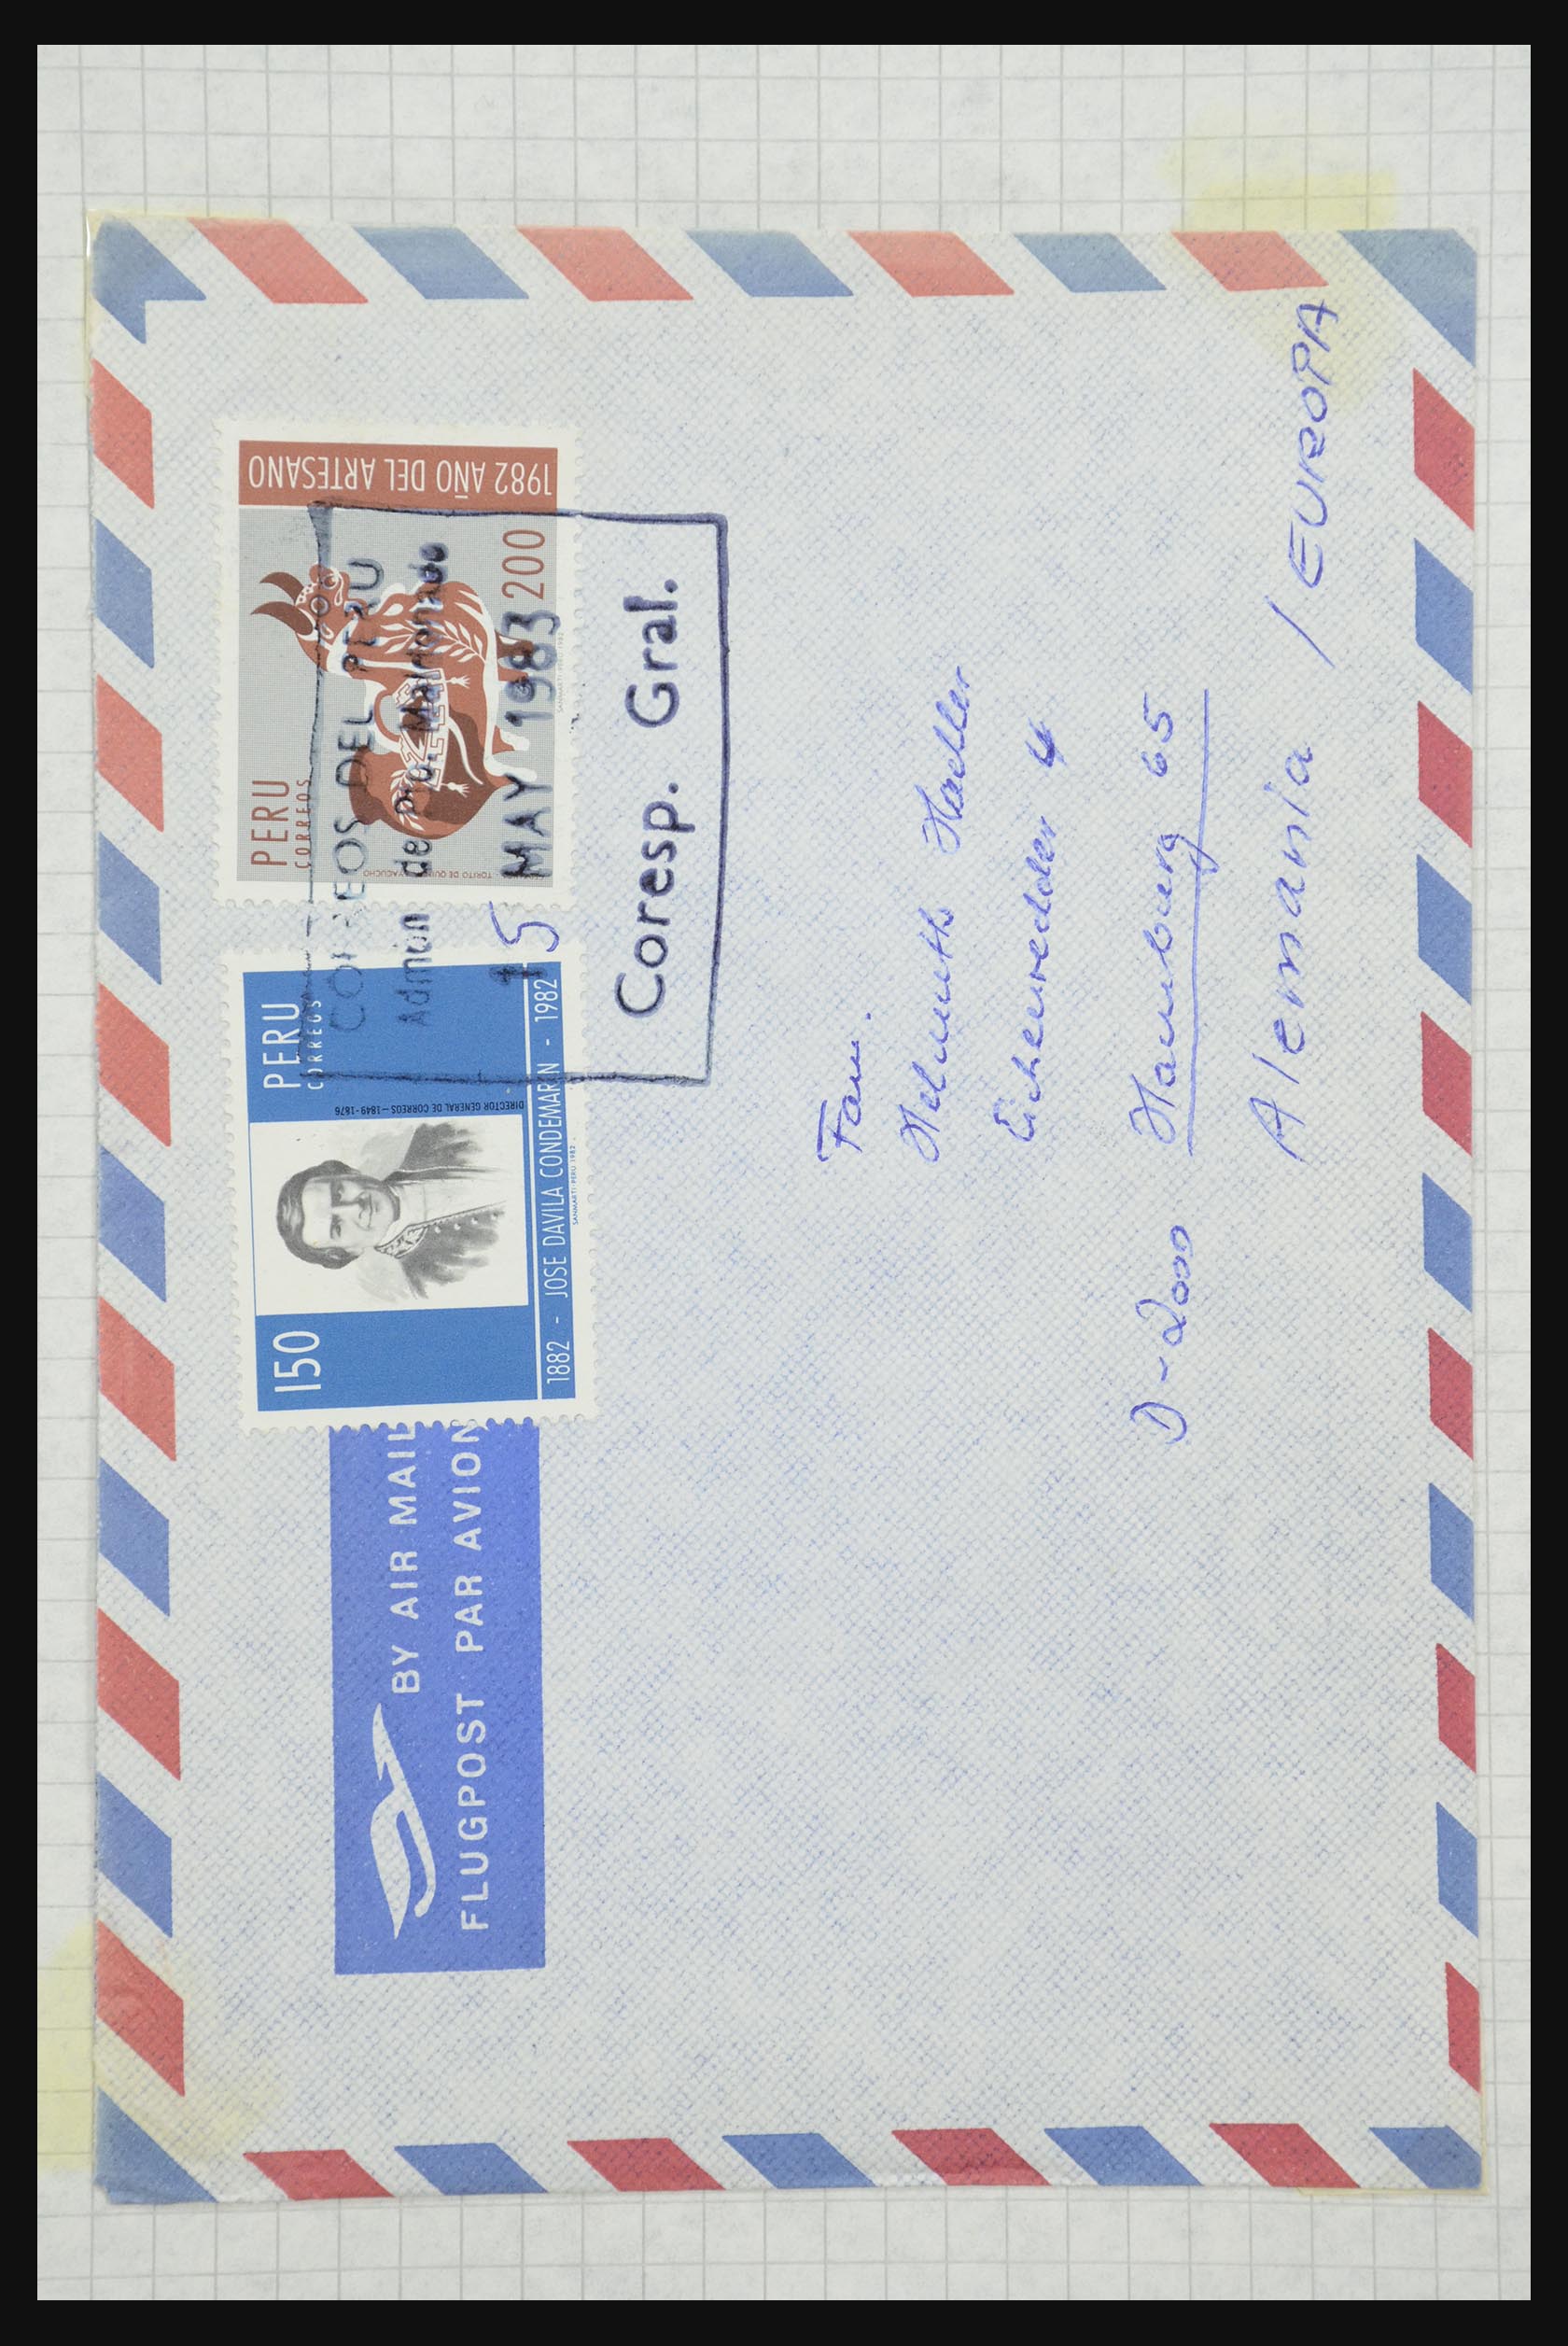 BY AIR MAIL
FLUGPOST PAR AVION
150
PERU
CORREOS
DIRECTOR GENERAL DE CORREOS - 1849-1876
1882 - JOSE DAVILA CONDEMARIN - 1982
SANMARTI-PERU 1982
PERU
CORREOS
200
1982 AÑO DEL ARTESANO
TORITO DE
CORREOS DEL PERU
Admón de Pto. Maldonado
5 MAY 1983
Coresp. Gral.
Fam.
Helmuth
Eichenredder 4
D-2000 Hamburg 65
Alemania / EUROPA